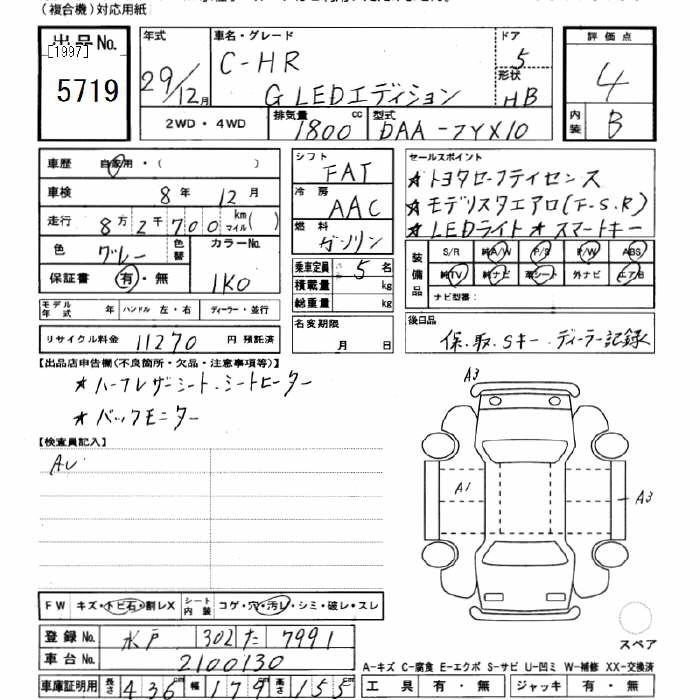 (複合機)対応用紙
出品No. [1997] 5719
年式 29/12月
車名・グレード C-HR G LEDエディション
ドア 5
形状 HB
評価点 4
内装 B
2WD・4WD
排気量 1800cc
型式 DAA-ZYX10
車歴 自家用・( )
車検 8年 12月
走行 8万2千700 km マイル( )
色 グレー 色替 カラーNo. 1K0
保証書 有・無
モデル年式 年 ハンドル 左・右 ディーラー・並行
リサイクル料金 11270 円 預託済
シフト FAT
冷房 AAC
燃料 ガソリン
乗車定員 5名
積載量 kg
総重量 kg
名変期限 月 日
セールスポイント
★トヨタセーフティセンス
★モデリスタエアロ(F.S.R)
★LEDライト ★スマートキー
装備品 S/R 純A/W P/S P/W ABS
純TV 純ナビ 革シート 外ナビ エアB
ナビ型番:
後日品
保.取.Sキー.ディーラー記録
【出品店申告欄(不良箇所・欠品・注意事項等)】
★ハーフレザーシート.シートヒーター
★バックモニター
【検査員記入】
A3
A1
A3
FW キズ・トビ石・割レX シート内装 コゲ・穴・汚レ・シミ・破レ・スレ
登録No. 水戸 302 た 7991
車台No. 2100130
車庫証明用 長さ 436 幅 179 高さ 155
スペア
A-キズ C-腐食 E-エクボ S-サビ U-凹ミ W-補修 XX-交換済
工具 有・無 ジャッキ 有・無